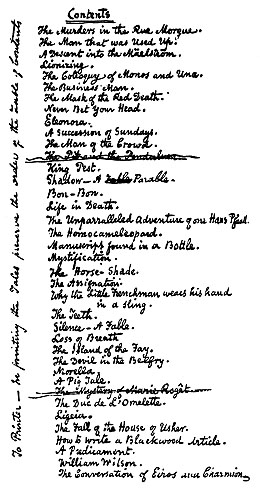 Contents
The Murders in the Rue Morgue.
The Man that was Used Up.
A Descent into the Maelström.
Lionizing.
The Colloquy of Monos and Una.
The Business Man.
The Mask of the Red Death.
Never Bet Your Head.
Eleonora.
A Succession of Sundays.
The Man of the Crowd.
The Pit and the Pendulum.
King Pest.
Shadow — A Fable Parable.
Bon-Bon.
Life in Death.
The Unparralleled Adventure of one Hans Pfaal.
The Homocameleopard.
Manuscript found in a Bottle.
Mystification.
The Horse-Shade.
The Assignation.
Why the Little Frenchman wears his hand
in a sling.
The Teeth.
Silence — A Fable.
Loss of Breath
The Island of the Fay.
The Devil in the Belfry.
Morella
A Pig Tale.
The Mystery of Marie Rogêt.
The Duc de L'Omelette.
Ligeia.
The Fall of the House of Usher.
How to write a Blackwood Article.
A Predicament.
William Wilson.
The Conversation of Eiros and Charmion.
To Printer — In printing the Tales preserve the order of the Table of Contents